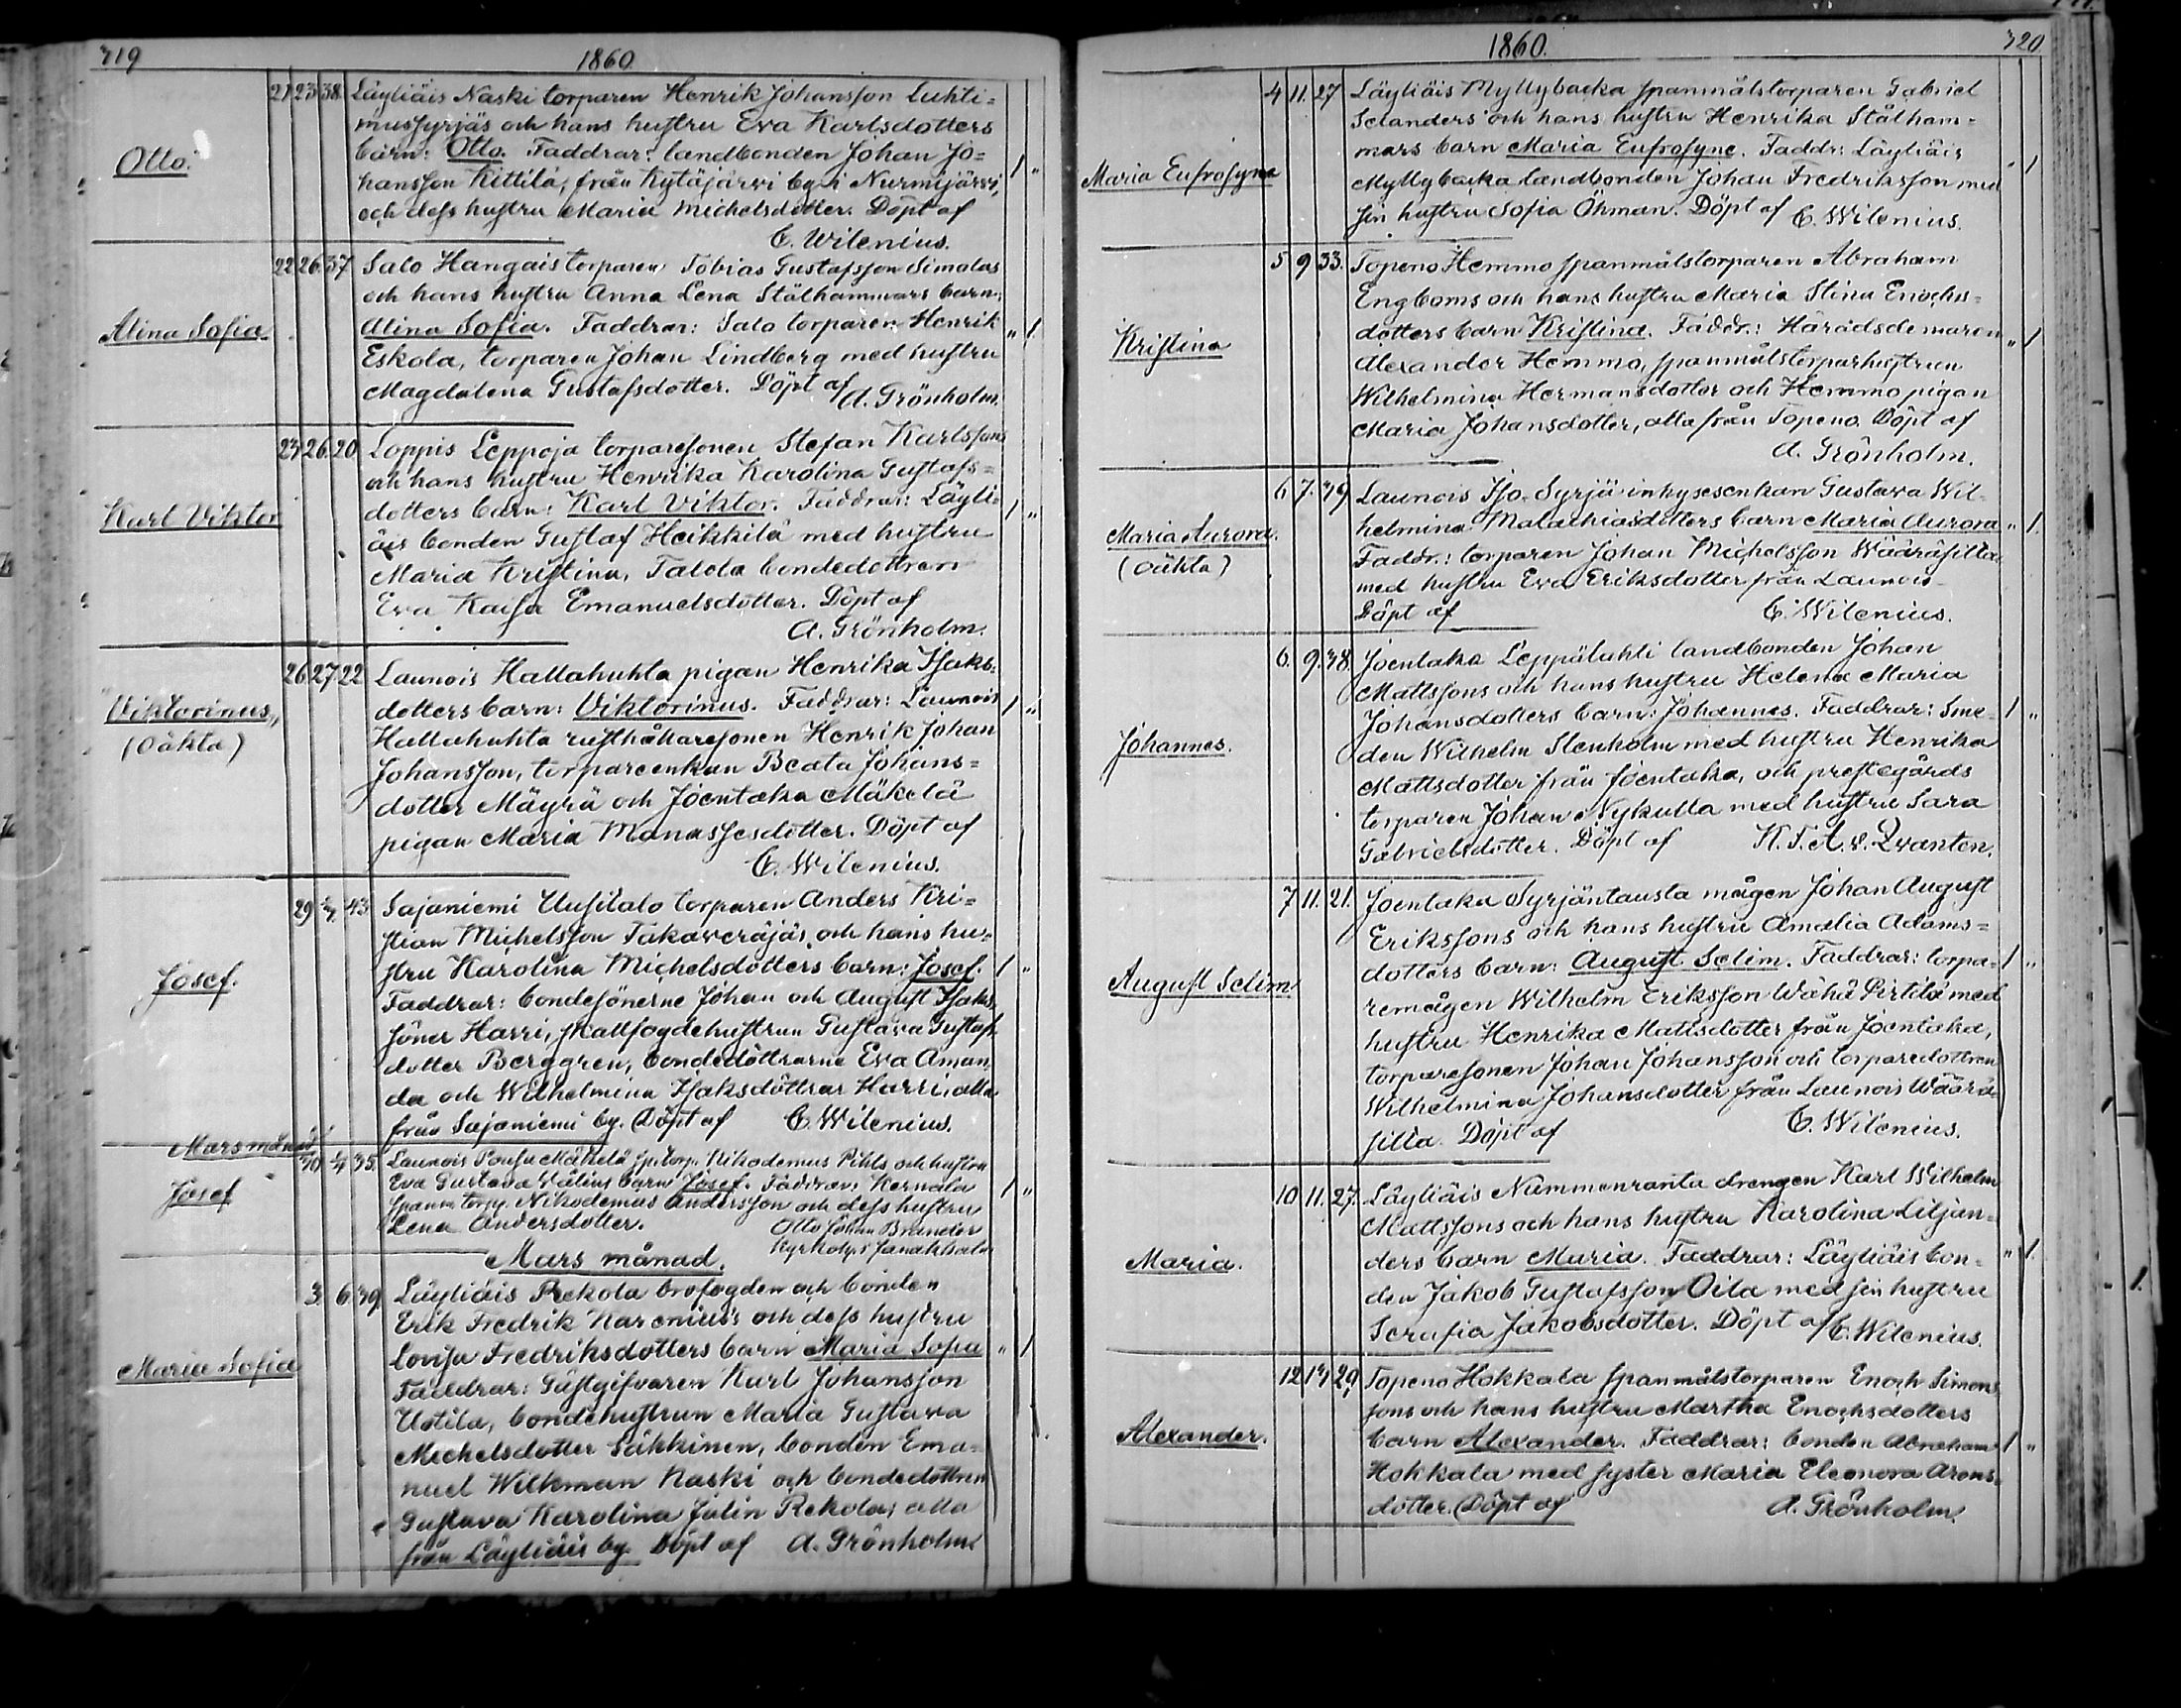 319 1860.
Otto.
21 23 38 Läyliäis Naski torparen Henrik Johansson Luhti=
mussyrjäs och hans hustru Eva Karlsdotters
barn: Otto. Faddrar: landbonden Johan Jo=
hansson Kittilä, från Kytäjärvi by i Nurmijärvi, 1 "
och dess hustru Maria Michelsdotter. Döpt af
C. Wilenius.
Alina Sofia
22 26 37 Salo Hangais torparen Tobias Gustafsson Simolas
och hans hustru Anna Lena Stålhammars barn:
Alina Sofia. Faddrar: Salo torparen Henrik " 1.
Eskola, torparen Johan Lindberg med hustru
Magdalena Gustafsdotter. Döpt af A. Grönholm.
Karl Viktor
23 26 20 Loppis Leppoja torparesonen Stefan Karlssons
och hans hustru Henrika Karolina Gustafs=
dotters barn: Karl Viktor. Faddrar: Läyli= 1 "
äis bonden Gustaf Heikkilä med hustru
Maria Kristina, Talola bondedottren
Eva Kaisa Emanuelsdotter. Döpt af
A. Grönholm.
Viktorinus,
(oäkta)
26 27 22 Launois Hallahuhta pigan Henrika Isaks=
dotters barn: Viktorinus. Faddrar: Launois 1 "
Hallahuhta rusthållaresonen Henrik Johan
Johansson, torpareenkan Beata Johans=
dotter Mäyrä och Joentaka Mäkelä
pigan Maria Manassesdotter. Döpt af
C. Wilenius.
Josef.
29 43 Sajaniemi Uusitalo torparen Anders Kri=
stian Michelsson Takaveräjäs och hans hu=
stru Karolina Michelsdotters barn: Josef. 1 "
Faddrar: bondesönerne Johan och August Isaks
söner Harri, skattfogdehustrun Gustava Gustafs
dotter Berggren, bondedöttrarne Eva Aman=
da och Wilhelmina Isaksdöttrar Harri, alla
från Sajaniemi by. Döpt af C. Wilenius.
Mars månad
Josef
30 1/4 35. Launois Mäkelä sp. torp. Nikodemus Pihls och hustru
Eva Gustava barn Josef. Faddrar: Kernala 1 "
spanm. torp. Nikodemus Andersson och dess hustru
Lena Andersdotter. Otto Johan Brander
Janakkala
Mars månad.
Maria Sofia
3. 6. 39. Läyliäis Rekola brofogden och bonden
Erik Fredrik Karenius's och dess hustru
Lovisa Fredriksdotters barn Maria Sofia " 1
Faddrar: Gästgifvaren Karl Johansson
Uotila, bondehustrun Maria Gustava
Michelsdotter Säkkinen, bonden Ema=
nuel Wilkman Naski och bondedottren
Gustava Karolina Julin Rekola; alla
från Läyliäis by. Döpt af A. Grönholm.
1860. 320
Maria Eufrosyne
4 11. 27 Läyliäis Myllybacka spanmålstorparen Gabriel
Selanders och hans hustru Henrika Stålham=
mars barn Maria Eufrosyne. Faddr: Läyliäis " 1
Myllybacka landbonden Johan Fredriksson med
sin hustru Sofia Öhman. Döpt af C. Wilenius.
Kristina
5 9 33. Topeno Hemmo spanmålstorparen Abraham
Engboms och hans hustru Maria Stina Enochs=
dotters barn Kristina. Faddr.: Häradsdomaren " 1
Alexander Hemmo, spanmålstorparhustrun
Wilhelmina Hermansdotter och Hemmo pigan
Maria Johansdotter, alla från Topeno. Döpt af
A. Grönholm.
Maria Aurora.
(oäkta)
6 7. 39. Launois Iso-Syrjä inhysesenkan Gustava Wil=
helmina Malachiasdotters barn Maria Aurora " 1.
Faddr.: torparen Johan Michelsson Wääräsilta
med hustru Eva Eriksdotter från Launois
Döpt af C. Wilenius.
Johannes.
6. 9. 38. Joentaka Leppäluhti landbonden Johan
Mattssons och hans hustru Helena Maria
Johansdotters barn: Johannes. Faddrar: Sme= 1 "
den Wilhelm Stenholm med hustru Henrika
Mattsdotter från Joentaka, och prestegårds
torparen Johan Nykulla med hustru Sara
Gabrielsdotter. Döpt af K. T. A. v. Qvanten.
August Selim
7 11. 21. Joentaka Syrjäntausta mågen Johan August
Erikssons och hans hustru Amalia Adams=
dotters barn: August Selim. Faddrar: torpa= 1 "
remågen Wilhelm Eriksson Wähä Pirtilä med
hustru Henrika Mattsdotter från Joentaka,
torparesonen Johan Johansson och torparedottren
Wilhelmina Johansdotter från Launois Wäärä
silta. Döpt af C. Wilenius.
Maria.
10 11. 27. Läyliäis Nummenranta drengen Karl Wilhelm
Mattssons och hans hustru Karolina Liljan=
ders barn Maria. Faddrar: Läyliäis bon= " 1.
den Jakob Gustafsson Oila med sin hustru
Serafia Jakobsdotter. Döpt af C. Wilenius.
Alexander.
12 13 29 Topeno Hokkala spanmålstorparen Enoch Simons
sons och hans hustru Martha Enochsdotters
barn Alexander. Faddrar: bonden Abraham 1 "
Hokkala med syster Maria Eleonora Arons=
dotter. Döpt af A. Grönholm.